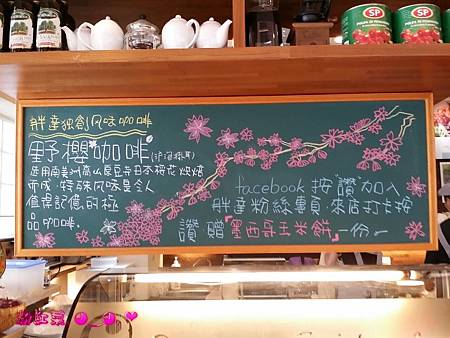 胖達独創风味咖啡
野櫻咖啡
選用南美洲高山原豆与日本桜花烘焙
而成.特殊风味是令人
值得記憶的極
品咖啡.
facebook 按"讚"加入
胖達粉絲專頁.來店打卡按
讚 贈『墨西哥玉米餅』一份.
SP
SP